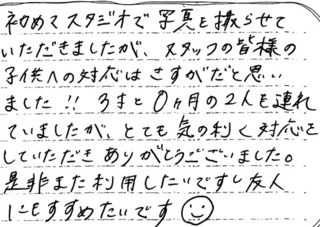 初めてスタジオで写真を撮らせて
いただきましたが、スタッフの皆様の
子供への対応はさすがだと思い
ました!! 3才と0ヶ月の2人を連れ
ていましたが、とても気の利く対応を
していただきありがとうございました。
是非また利用したいですし友人
にもすすめたいです